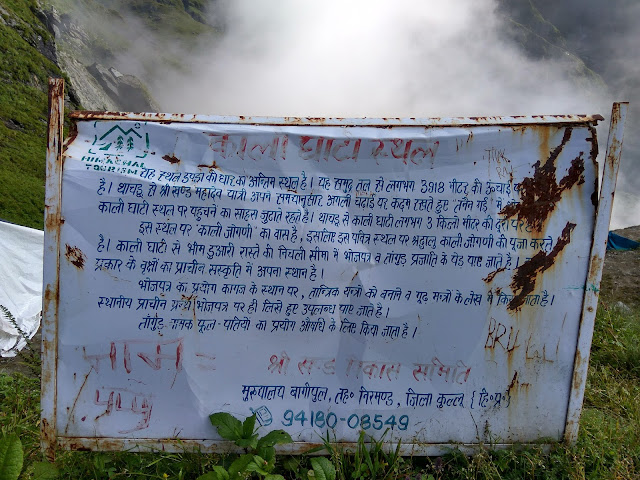 काली घाटी स्थल
HIMACHAL
TOURISM
यह स्थल डण्डा की धार का अन्तिम स्थल है। यह समुद्र तल से लगभग 3918 मीटर की ऊंचाई पर
है। थाचडू से श्री खण्ड महादेव यात्री अपने समयानुसार अगली चढ़ाई पर कदम रखते हुए
काली घाटी स्थल पर पहुंचने का साहस जुटाते रहते है। थाचडू से काली घाटी लगभग 3 किलो मीटर की दूरी पर
इस स्थल पर 'काली जोगणी' का वास है, इसलिए इस पवित्र स्थल पर श्रद्धालु काली जोगणी की पूजा करते
है। काली घाटी से भीम डुआरी रास्ते की निचली सीम में भोजपत्र व तांगुड़ प्रजाति के पेड़ पाए जाते है।
प्रकार के वृक्षों का प्राचीन संस्कृति में अपना स्थान है।
भोजपत्र का प्रयोग कागज के स्थान पर, तान्त्रिक यन्त्रों को बनाने व गूढ़ मन्त्रों के लेख में किया जाता है।
स्थानीय प्राचीन ग्रन्थ भोजपत्र पर ही लिखे हुए उपलब्ध पाए जाते है।
तांगुड़ नामक फूल-पतियों का प्रयोग औषधि के लिए किया जाता है।
BRIJ
श्री खण्ड विकास समिति
मुख्यालय बागीपुल, तह० निरमण्ड, जिला कुल्लू {हि०प्र०}
94180-08549